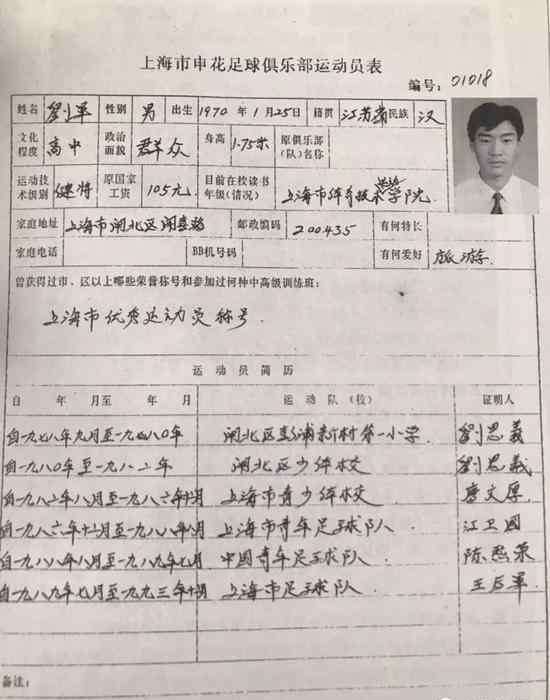 上海市申花足球俱乐部运动员表
编号：01018
姓名 刘军 性别 男 出生 1970年1月25日 籍贯 江苏省 民族 汉
文化程度 高中 政治面貌 群众 身高 1.75米 原俱乐部(队)名称
运动技术级别 健将 原国家工资 105元 目前在校读书年级(情况) 上海市体育运动技术学院
家庭地址 上海市闸北区闻喜路 邮政编码 200435 有何特长
家庭电话 BB机号码 有何爱好 旅游
曾获得过市、区以上哪些荣誉称号和参加过何种中高级训练班：
上海市优秀运动员称号.
运动员简历
自 年 月至 年 月 运动队(校) 证明人
自一九七八年九月至一九八〇年 闸北区彭浦新村第一小学. 劉思義
自一九八〇年至一九八二年 闸北区少体校 劉思義
自一九八二年八月至一九八六年十月 上海市青少体校 唐文厚.
自一九八六年十月至一九八八年八月 上海市青年足球队 江卫国
自一九八八年八月至一九八九年七月 中国青年足球队 陈熙荣
自一九八九年七月至一九九三年十月 上海市足球队 王后军
备注：